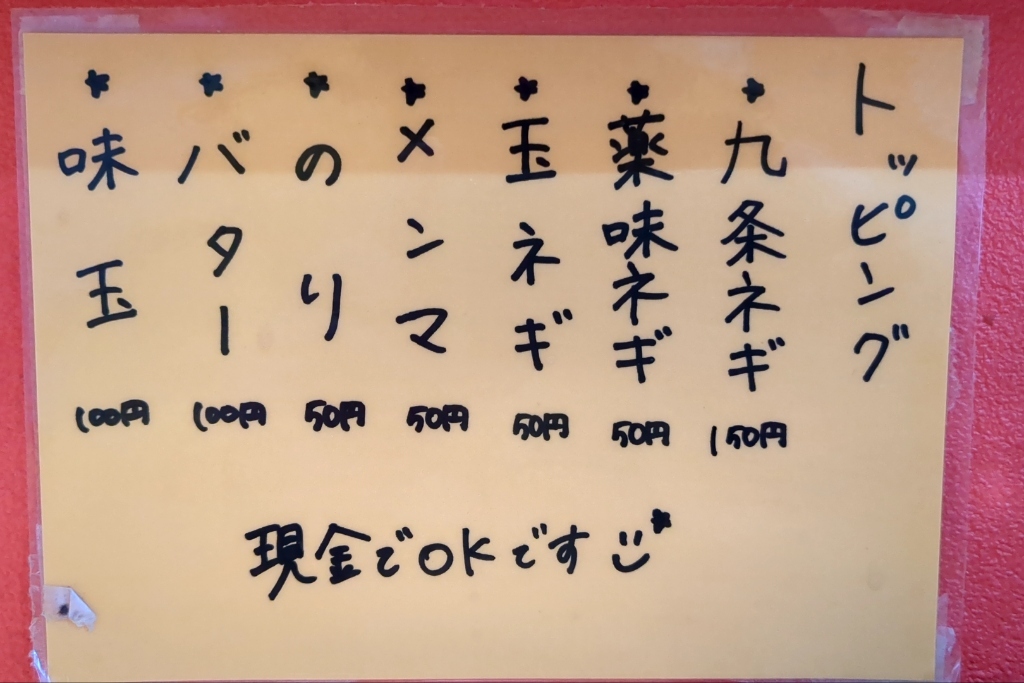 トッピング
★九条ネギ 150円
★薬味ネギ 50円
★玉ネギ 50円
★メンマ 50円
★のり 50円
★バター 100円
★味玉 100円
現金でOKです